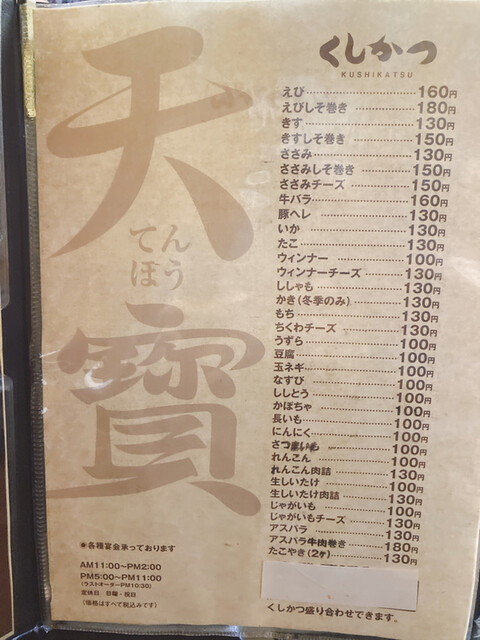 天寶
てん
ぼう
くしかつ
KUSHIKATSU
えび 160円
えびしそ巻き 180円
きす 130円
きすしそ巻き 150円
ささみ 130円
ささみしそ巻き 150円
ささみチーズ 150円
牛バラ 160円
豚ヘレ 130円
いか 130円
たこ 130円
ウィンナー 100円
ウィンナーチーズ 130円
ししゃも 130円
かき(冬季のみ) 130円
もち 130円
ちくわチーズ 130円
うずら 100円
豆腐 100円
玉ネギ 100円
なすび 100円
ししとう 100円
かぼちゃ 100円
長いも 100円
にんにく 100円
さつまいも 100円
れんこん 100円
れんこん肉詰 130円
生しいたけ 100円
生しいたけ肉詰 130円
じゃがいも 100円
じゃがいもチーズ 130円
アスパラ 130円
アスパラ牛肉巻き 180円
たこやき(2ヶ) 130円
くしかつ盛り合わせできます。
※各種宴会承っております
AM11:00〜PM2:00
PM5:00〜PM11:00
(ラストオーダーPM10:30)
定休日 日曜・祝日
(価格はすべて税込みです)